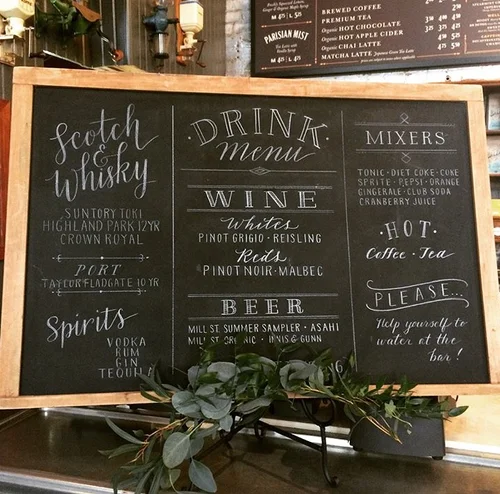 Scotch
&
Whisky
SUNTORY TOKI
HIGHLAND PARK 12YR
CROWN ROYAL
PORT
TAYLOR FLADGATE 10 YR
Spirits
VODKA
RUM
GIN
TEQUILA
DRINK
Menu
WINE
Whites
PINOT GRIGIO · REISLING
Reds
PINOT NOIR · MALBEC
BEER
MILL ST. SUMMER SAMPLER · ASAHI
MILL ST. ORGANIC · INNIS & GUNN
MIXERS
TONIC · DIET COKE · COKE
SPRITE · PEPSI · ORANGE
GINGERALE · CLUB SODA
CRANBERRY JUICE
· HOT ·
Coffee · Tea
PLEASE...
Help yourself to
water at the
bar!
PARISIAN MIST
BREWED COFFEE
PREMIUM TEA
Organic HOT CHOCOLATE
Organic HOT APPLE CIDER
Organic CHAI LATTE
MATCHA LATTE